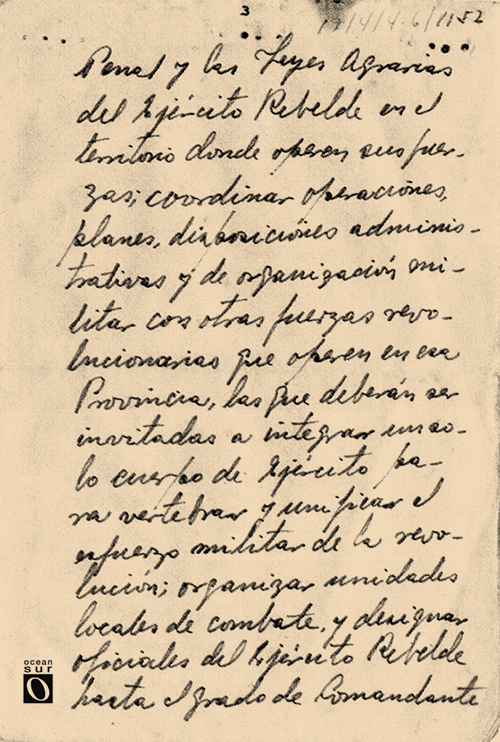 3
Penal y las Leyes Agrarias
del Ejército Rebelde en el
territorio donde operen sus fuer-
zas; coordinar operaciones,
planes, disposiciones adminis-
trativas y de organización mi-
litar con otras fuerzas revo-
lucionarias que operen en esa
Provincia, las que deberán ser
invitadas a integrar un so-
lo cuerpo de Ejército pa-
ra vertebrar y unificar el
esfuerzo militar de la revo-
lución; organizar unidades
locales de combate, y designar
oficiales del Ejército Rebelde
hasta el grado de Comandante
ocean
sur